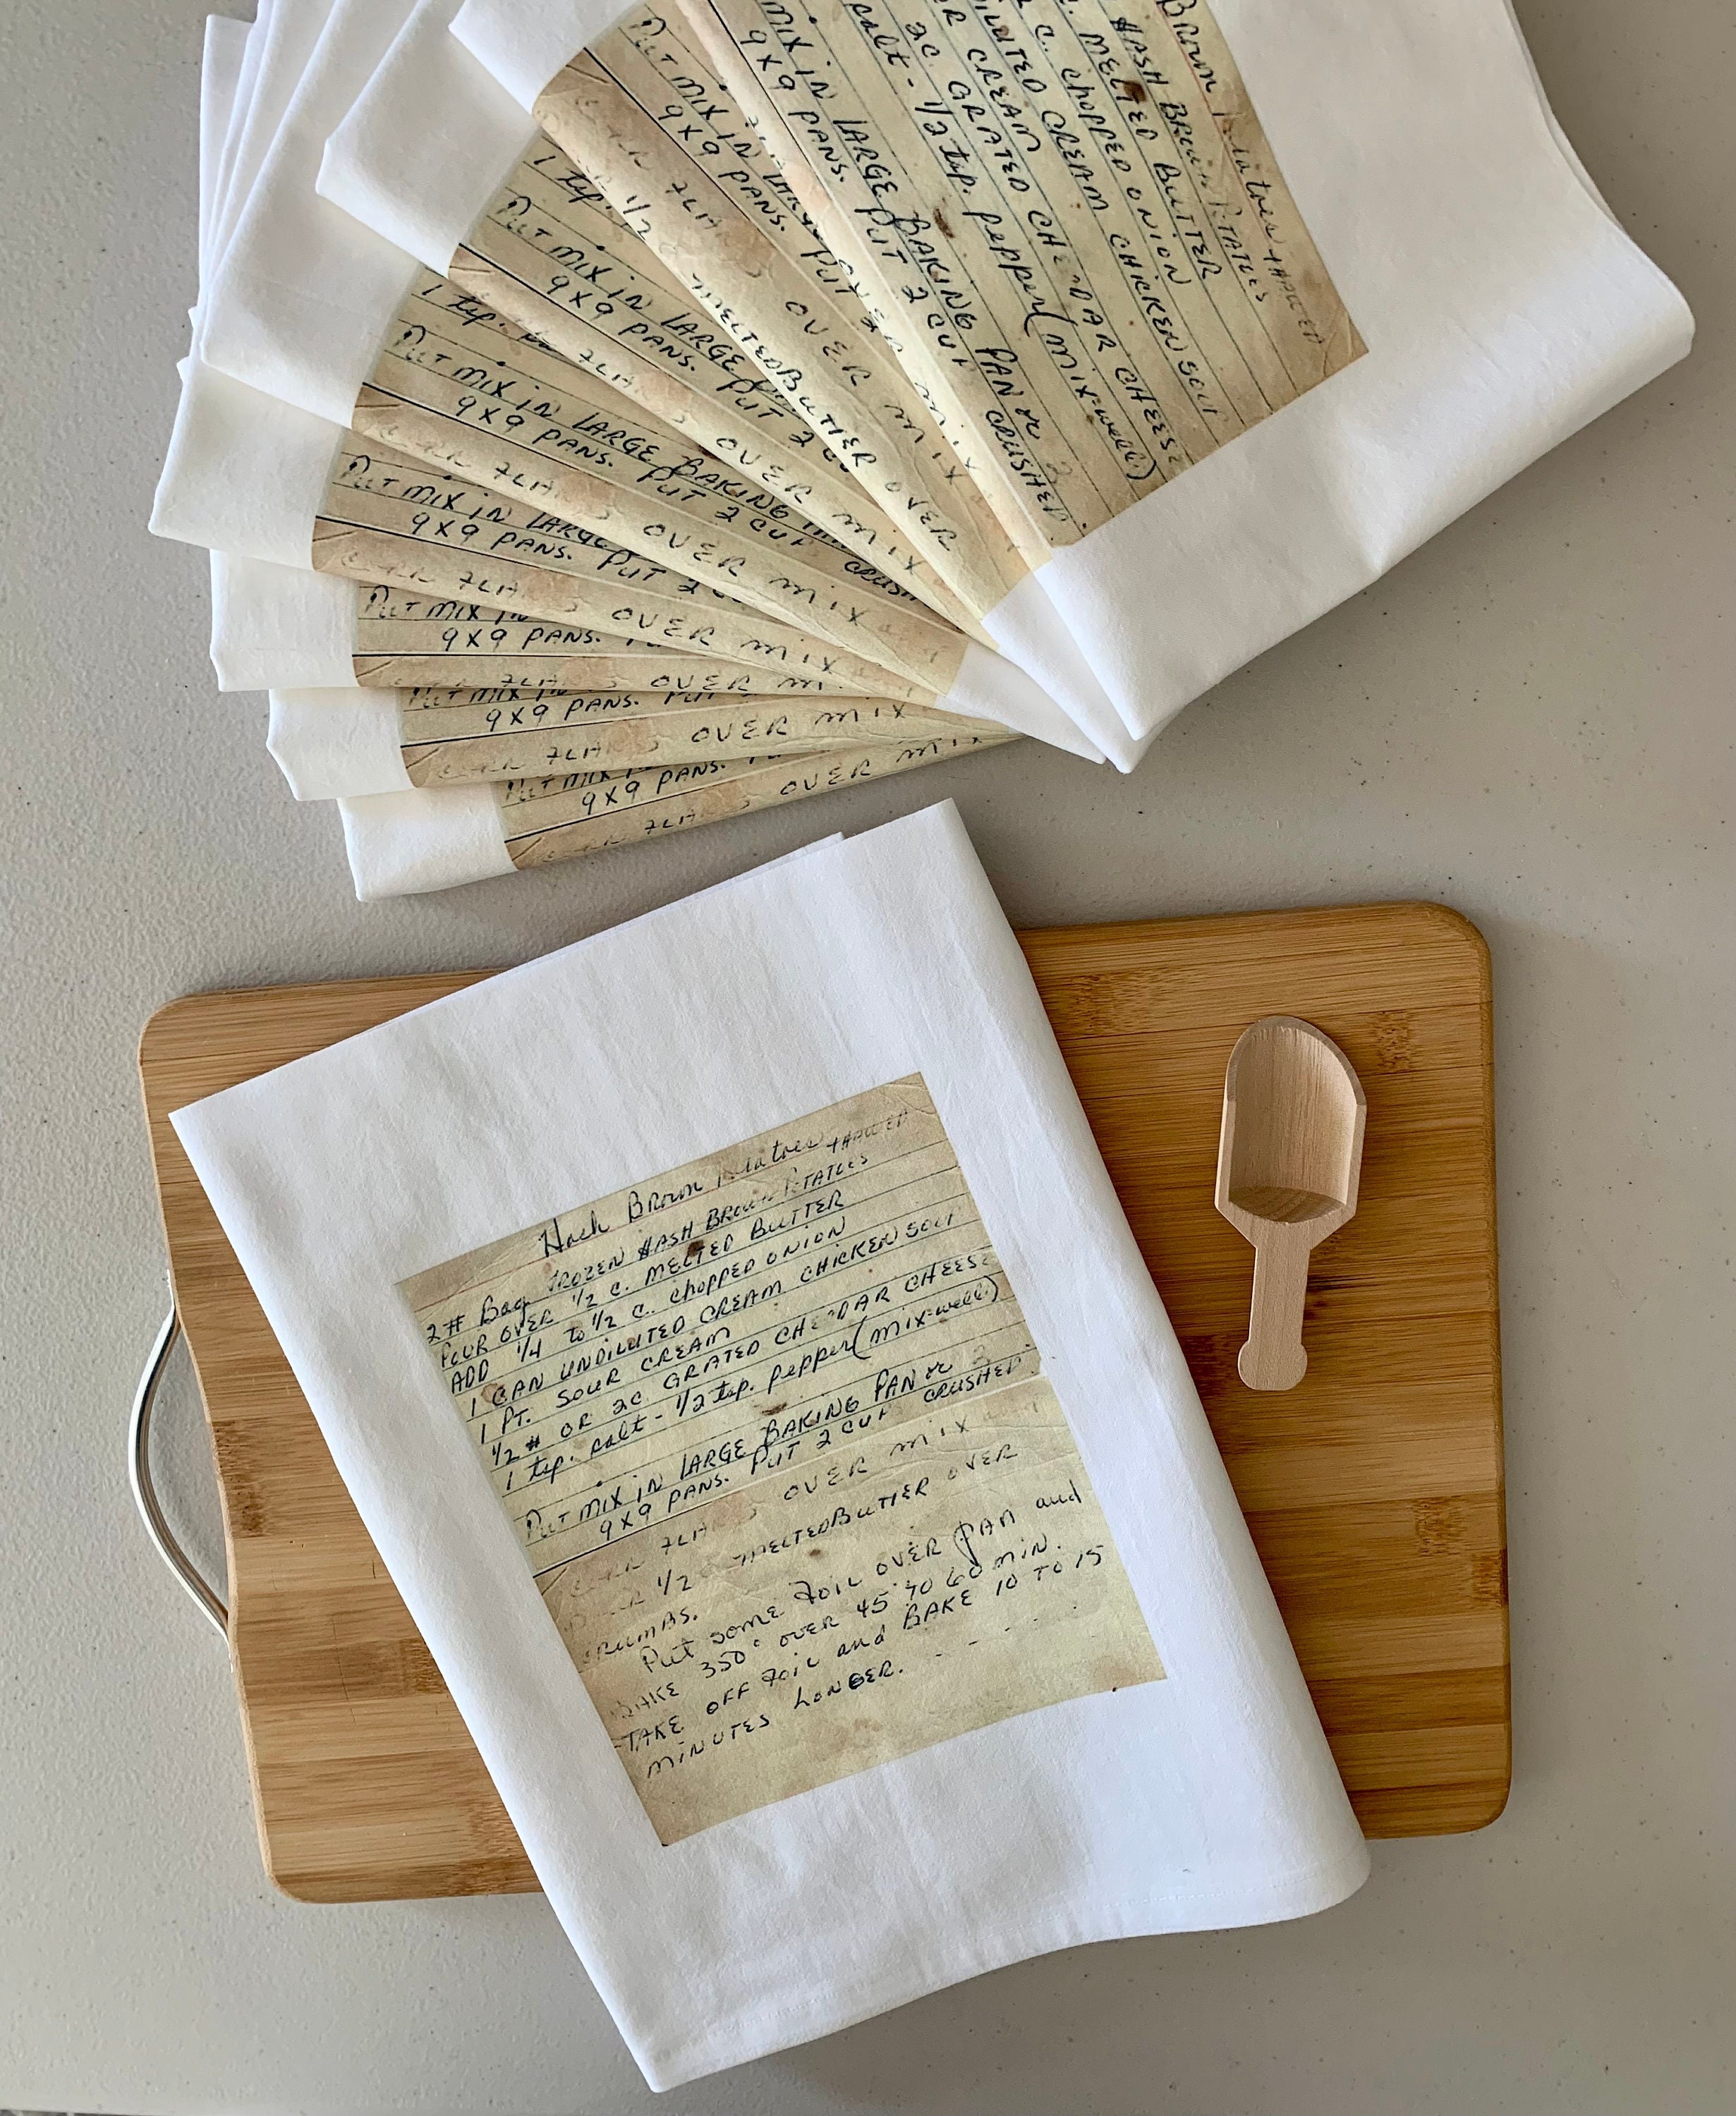 Hash Brown Potatoes THAWED
2# Bag FROZEN HASH BROWN POTATOES
POUR OVER 1/2 C. MELTED BUTTER
ADD 1/4 to 1/2 C. chopped ONION
1 CAN UNDILUTED CREAM CHICKEN SOUP
1 PT. SOUR CREAM
1/2 # OR 2C. GRATED CHEDDAR CHEESE
1 tsp. salt - 1/2 tsp. pepper (mix well)
Put MIX IN LARGE BAKING PAN or 2
9X9 PANS. PUT 2 CUP CRUSHED
FLAKES OVER MIX
1/2 C MELTED BUTTER OVER
CRUMBS.
Put some Foil OVER PAN and
BAKE 350° OVER 45 TO 60 MIN.
TAKE OFF Foil and BAKE 10 TO 15
MINUTES LONGER.